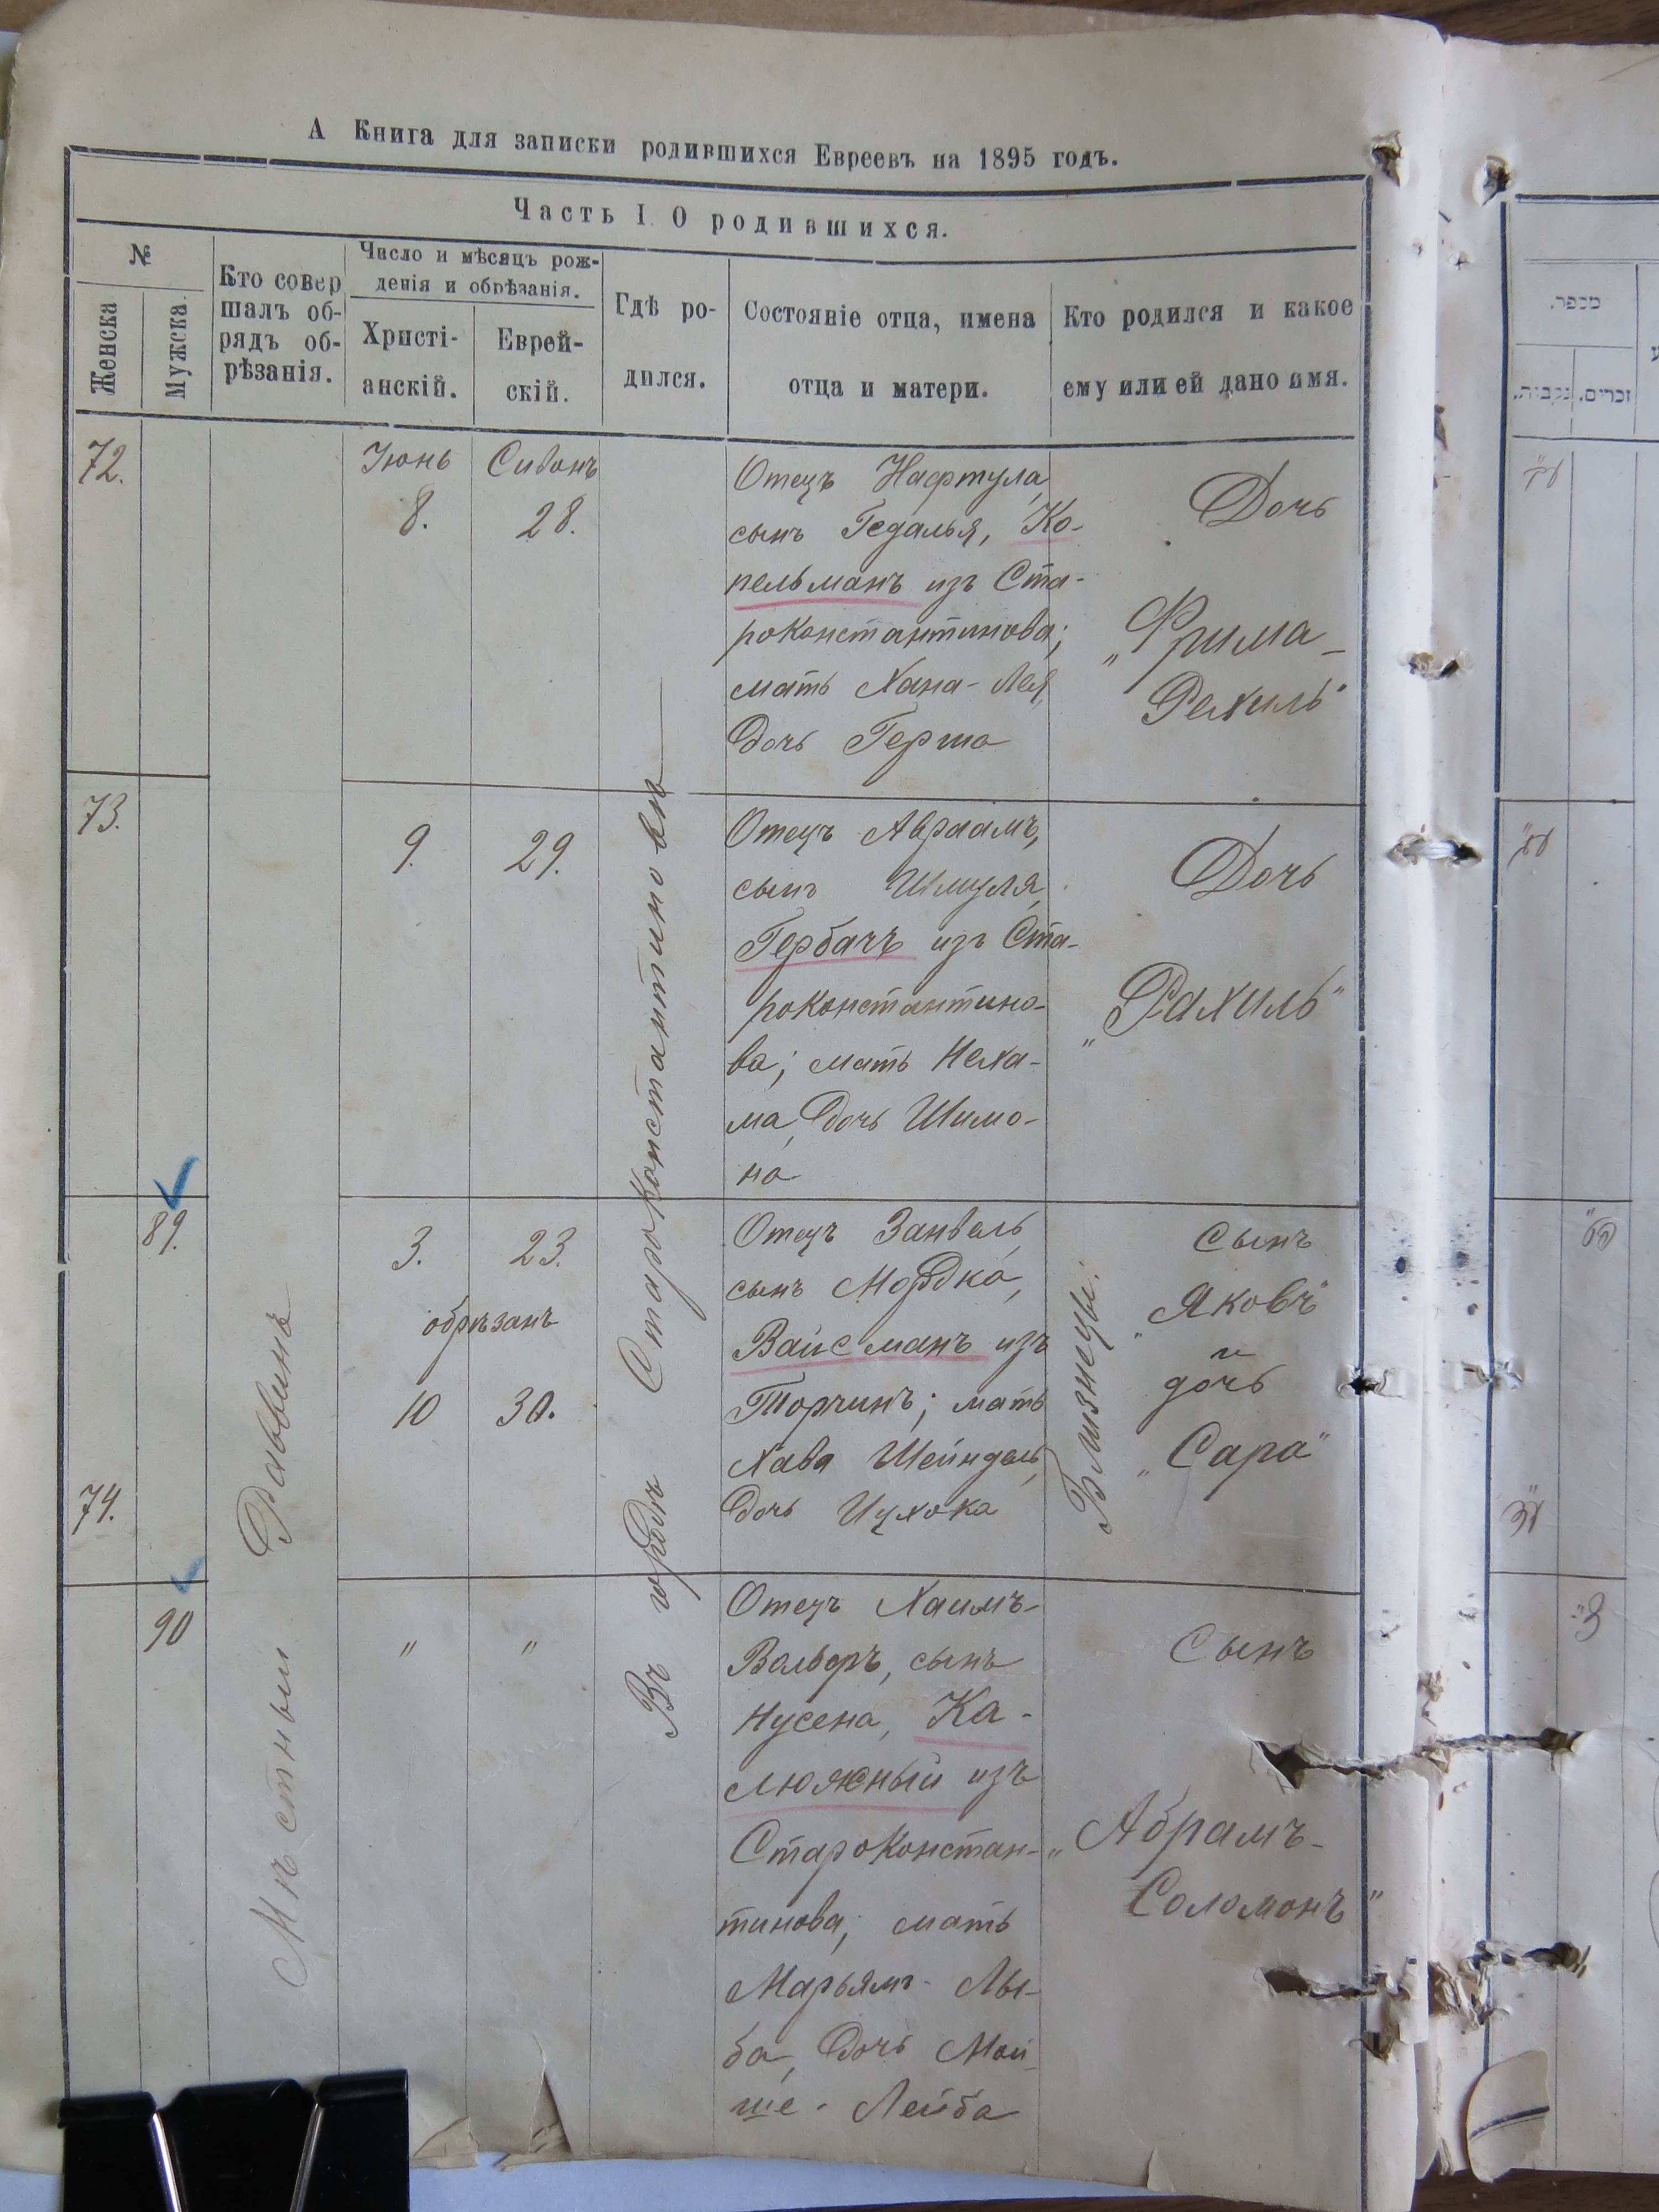 А Книга для записки родившихся Евреевъ на 1895 годъ.
Часть I. О родившихся.
№
Женска
Мужска
Кто совер
шалъ об-
рядъ об-
рѣзанія.
Число и мѣсяцъ рож-
денія и обрѣзанія.
Христі-
анскій.
Еврей-
скій.
Гдѣ ро-
дился.
Состояніе отца, имена
отца и матери.
Кто родился и какое
ему или ей дано имя.
מספר.
נקבות.
זכרים.
Мѣстный Раввинъ
Въ городѣ Староконстантиновѣ
72.
Іюнь
8.
Сивонъ
28.
Отецъ Нафтула,
сынъ Гедалья, Ко-
пельманъ изъ Ста-
роконстантинова;
мать Хана-Лея,
дочь Герша
Дочь
„Фрима-
Рехиль"
73.
9.
29.
Отецъ Авраамъ,
сынъ Шмуля,
Гербачъ изъ Ста-
роконстантино-
ва; мать Неха-
ма, дочь Шимо-
на
Дочь
„Рахиль"
89.
3.
23.
обрѣзанъ
10
30.
74.
Отецъ Занвель,
сынъ Мордка,
Вайсманъ изъ
Торчинъ; мать
Хава Шейндель,
дочь Ицхока
Близнецы:
Сынъ
„Яковъ"
и
дочь
„Сара"
90
"
"
Отецъ Хаимъ-
Вольфъ, сынъ
Нусена, Ка-
люжный изъ
Староконстан-
тинова; мать
Марьямъ-Лы-
ба, дочь Мой-
ше-Лейба
Сынъ
„Абрамъ-
Соломонъ"